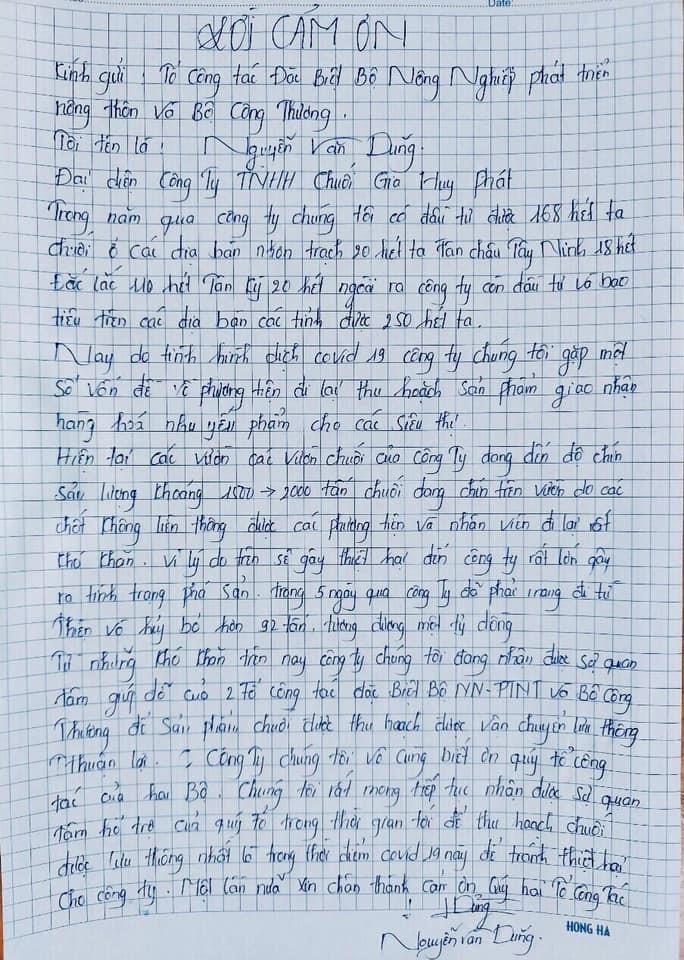 Date:
LỜI CẢM ƠN
Kính gửi : Tổ Công tác Đặc Biệt Bộ Nông Nghiệp phát triển
nông thôn và Bộ Công Thương.
Tôi tên là : Nguyễn Văn Dũng.
Đại diện Công Ty TNHH Chuối Gia Huy Phát
Trong năm qua công ty chúng tôi có đầu tư được 168 hét ta
chuối ở các địa bàn nhơn trạch 20 hét ta Tân châu Tây Ninh 18 hét
Đắc lắc 110 hét Tân Kỳ 20 hét ngoài ra công ty còn đầu tư và bao
tiêu trên các địa bàn các tỉnh được 250 hét ta.
Nay do tình hình dịch covid 19 công ty chúng tôi gặp một
số vấn đề về phương tiện đi lại thu hoạch sản phẩm giao nhận
hàng hoá nhu yếu phẩm cho các siêu thị.
Hiện tại các vườn các vườn chuối của công Ty đang đến độ chín
sản lượng khoảng 1500 → 2000 tấn chuối đang chín trên vườn do các
chốt không liên thông được các phương tiện và nhân viên đi lại rất
khó khăn. Vì lý do trên sẽ gây thiệt hại đến công ty rất lớn gây
ra tình trạng phá sản. trong 5 ngày qua công Ty đã phải mang đi từ
thiện và hủy bỏ hơn 92 tấn. tương đương một tỷ đồng
Từ những khó khăn trên nay công ty chúng tôi đang nhận được sự quan
tâm giúp đỡ của 2 Tổ công tác đặc Biệt Bộ NN-PTNT và Bộ Công
Thương để sản phẩm chuối được thu hoạch được vận chuyển lưu thông
Thuận lợi. : Công Ty chúng tôi vô cùng biết ơn quý tổ công
tác của hai Bộ. Chúng tôi rất mong tiếp tục nhận được sự quan
tâm hỗ trợ của quý Tổ trong thời gian tới để thu hoạch chuối
được lưu thông nhất là trong thời điểm covid 19 này để tránh thiệt hại
cho công ty. Một lần nữa xin chân thành cảm ơn Quý hai Tổ Công Tác
! Dũng
Nguyễn Văn Dũng.
HONG HA